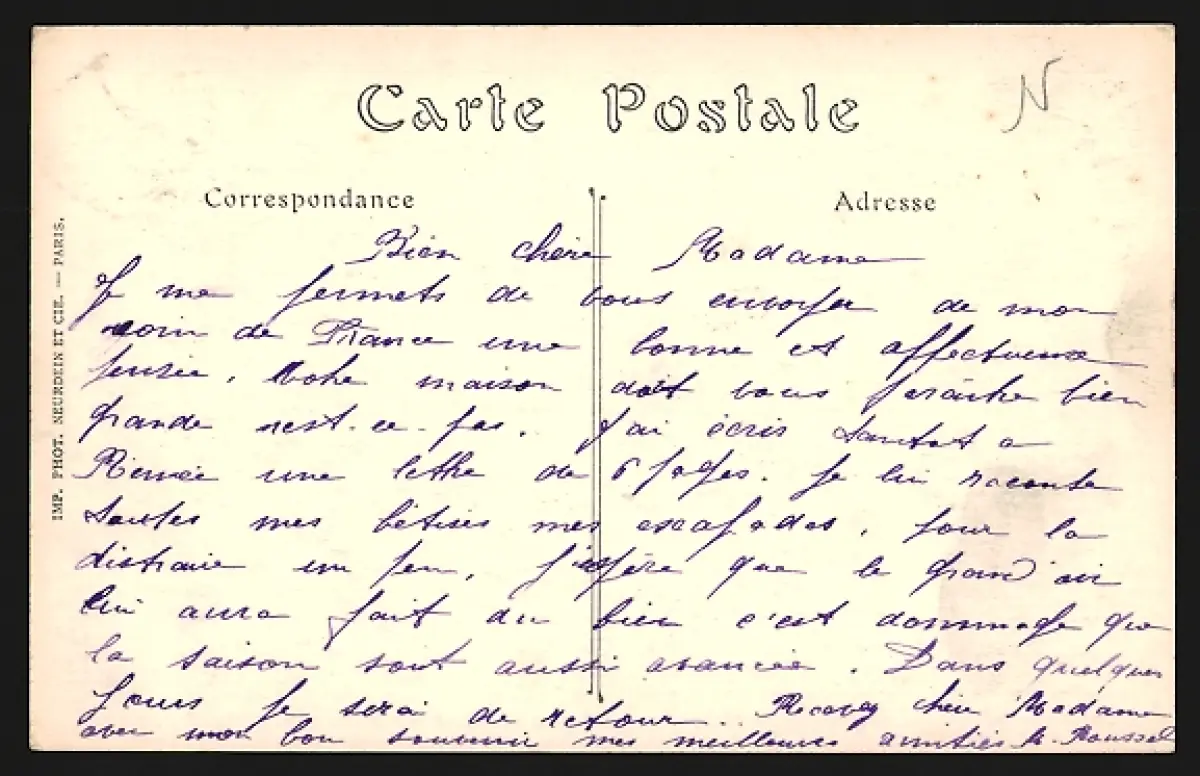 Carte Postale
N
Correspondance
Adresse
IMP. PHOT. NEURDEIN ET CIE. — PARIS.
Bien chère Madame
Je me permets de vous envoyer de mon
coin de France une bonne et affectueuse
pensée. Votre maison doit vous paraître bien
grande n'est-ce-pas. J'ai écris tantot a
Renée une lettre de 6 pages. Je lui raconte
toutes mes bêtises mes escapades, pour la
distraire un peu, j'espère que le grand air
lui aura fait du bien c'est dommage que
la saison soit aussi avancée. Dans quelques
jours je serai de retour.. Recevez chère Madame
avec mon bon souvenir mes meilleures amitiés. R. Roussel